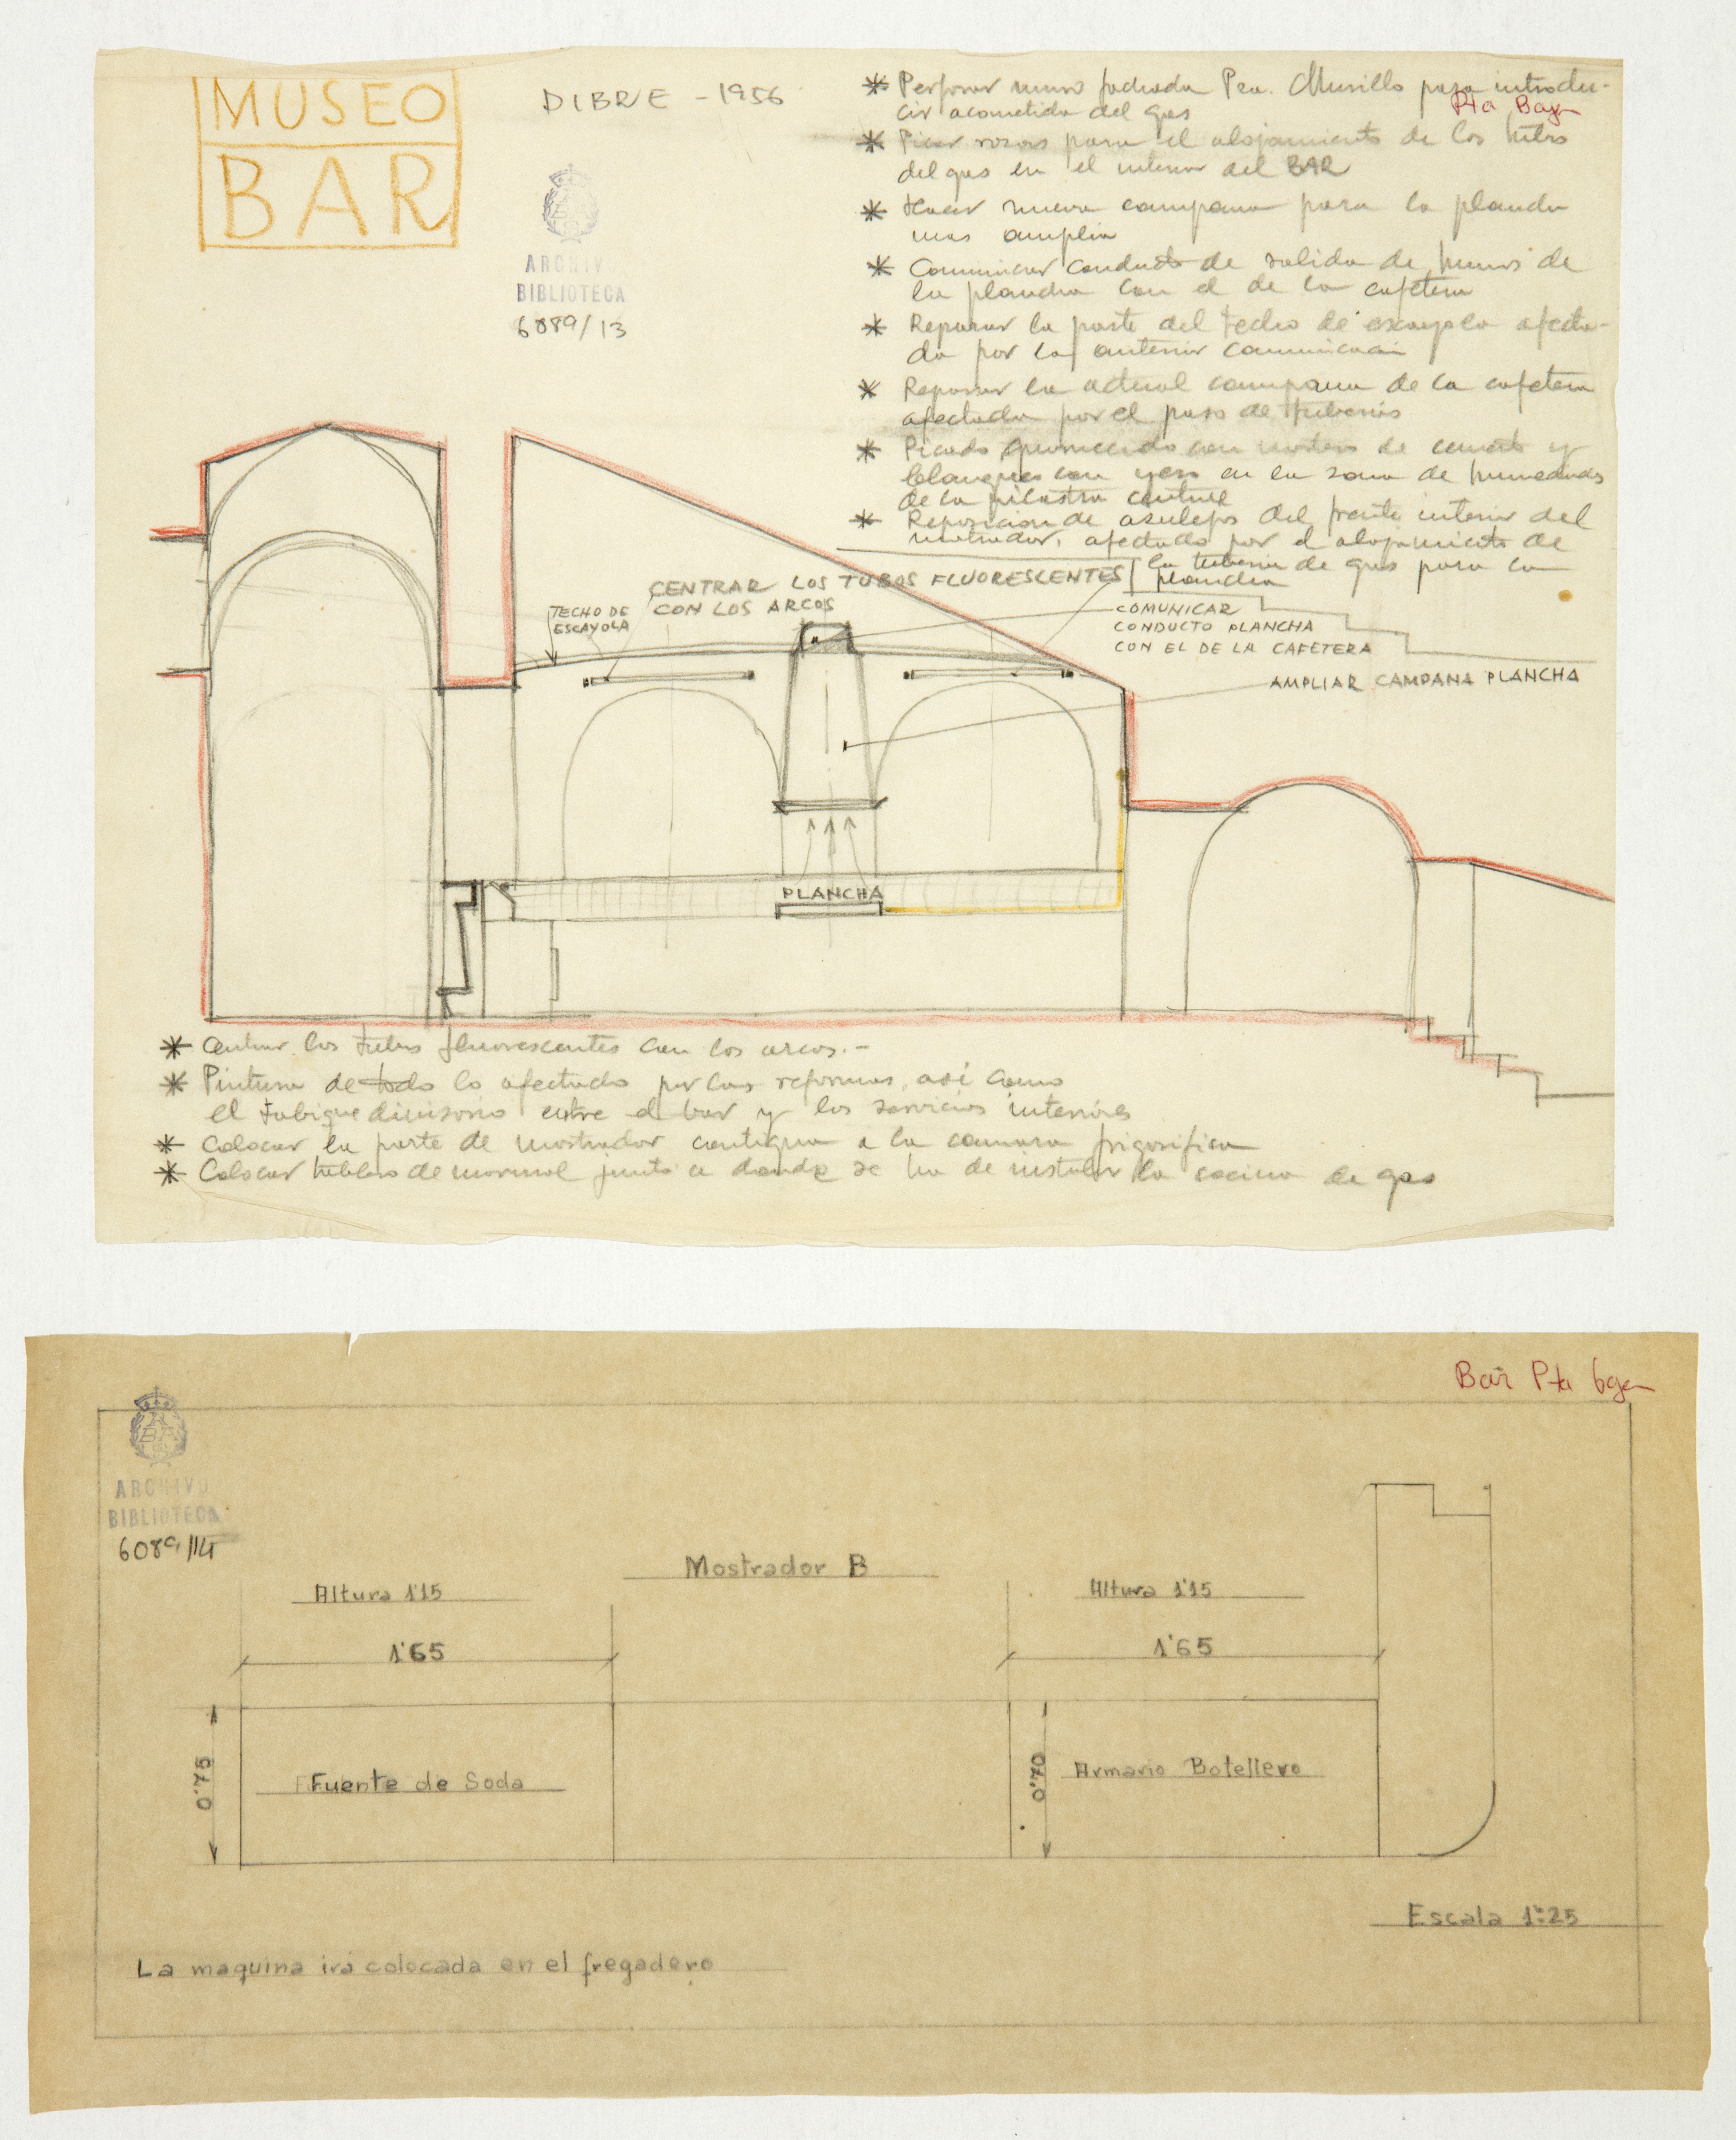 MUSEO
BAR
DIBRE - 1956
ARCHIVO
BIBLIOTECA
6089/13
* Perforar muro fachada Pza. Murillo para introdu-
cir acometida del gas
Pta Baja
* Picar rozas para el alojamiento de los tubos
del gas en el interior del BAR
* Hacer nueva campana para la plancha
mas amplia
* Comunicar conducto de salida de humos de
la plancha con el de la cafetera
* Reparar la parte del techo de escayola afecta-
da por la anterior comunicacion
* Reparar la actual campana de la cafetera
afectada por el paso de tuberias
* Picado guarnecido con mortero de cemento y
blanqueo con yeso en la zona de humedades
de la pilastra central
* Reposicion de azulejos del frente interior del
mostrador, afectado por el alojamiento de
la tuberia de gas para la
plancha
CENTRAR LOS TUBOS FLUORESCENTES
CON LOS ARCOS
TECHO DE
ESCAYOLA
COMUNICAR
CONDUCTO PLANCHA
CON EL DE LA CAFETERA
AMPLIAR CAMPANA PLANCHA
PLANCHA
* Centrar los tubos fluorescentes con los arcos.-
* Pintura de todo lo afectado por las reformas, así como
el tabique divisorio entre el bar y los servicios interiores
* Colocar la parte de mostrador contigua a la camara frigorifica
* Colocar tablero de marmol junto a donde se ha de instalar la cocina de gas
Bar Pta baja
ARCHIVO
BIBLIOTECA
6089/14
Mostrador B
Altura 1'15
Altura 1'15
1'65
1'65
0'75
Fuente de Soda
0'70
Armario Botellero
Escala 1:25
La maquina irá colocada en el fregadero